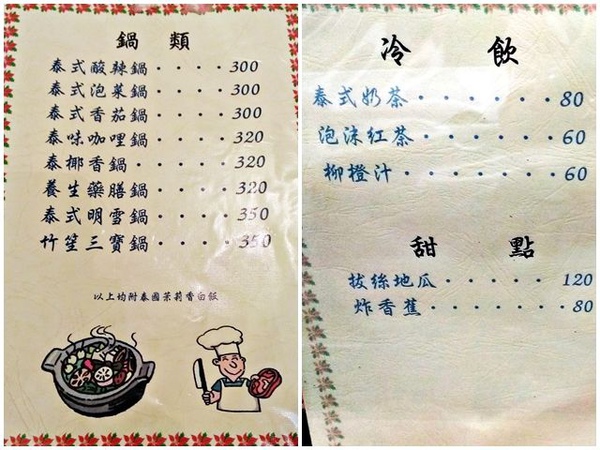 鍋類
泰式酸辣鍋・・・・300
泰式泡菜鍋・・・・300
泰式香茄鍋・・・・300
泰味咖哩鍋・・・・320
泰椰香鍋・・・・320
養生藥膳鍋・・・・320
泰式明雪鍋・・・・350
竹笙三寶鍋・・・・350
以上均附泰國茉莉香白飯
冷飲
泰式奶茶・・・・・・・80
泡沫紅茶・・・・・・・60
柳橙汁・・・・・・・60
甜點
拔絲地瓜・・・・・・120
炸香蕉・・・・・・・80